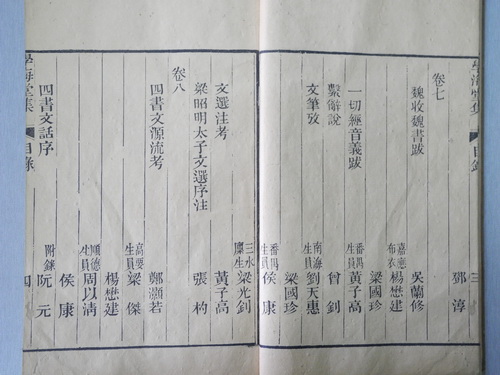 學海堂集 目錄 三
鄧淳
卷七
魏收魏書跋 吳蘭修
嘉應布衣 楊懋建
梁國珍
一切經音義跋 番禺生員 黃子高
繫辭說 曾釗
文筆攷 南海生員 劉天惠
梁國珍
番禺生員 侯康
三水廩生 梁光釗
文選注考 黃子高
梁昭明太子文選序注 張杓
卷八
四書文源流考 鄭灝若
高要生員 梁傑
楊懋建
順德生員 周以清
侯康
四書文話序 附錄 阮元
學海堂集 目錄 四